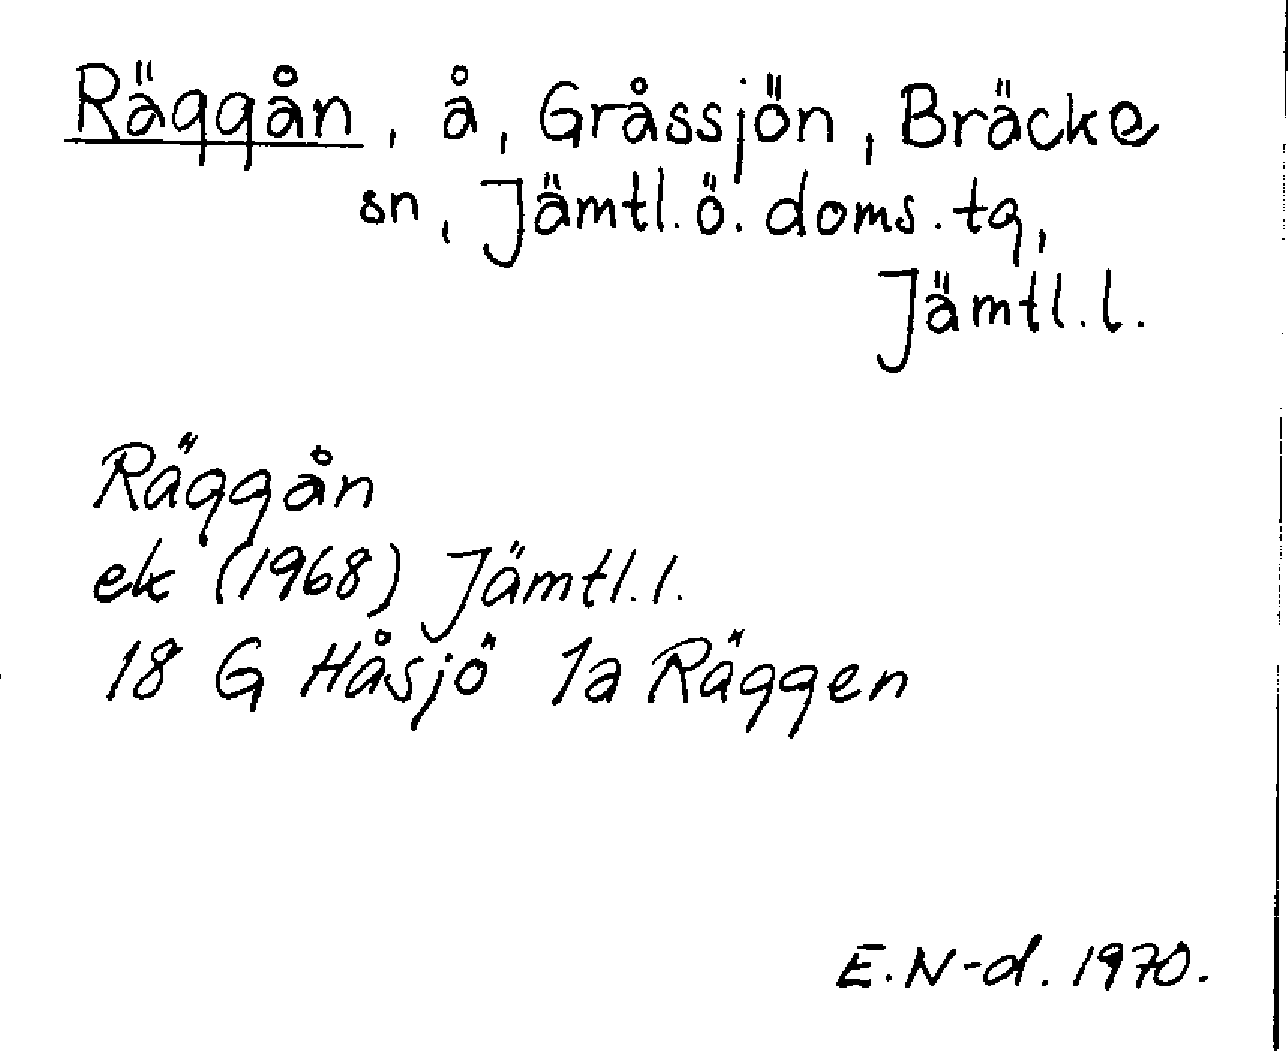 Räggån, å, Gråssjön, Bräcke
sn, Jämtl. ö. doms. tg,
Jämtl. l.
Räggån
ek (1968) Jämtl. l.
18 G Håsjö 1a Räggen
E. N-d. 1970.